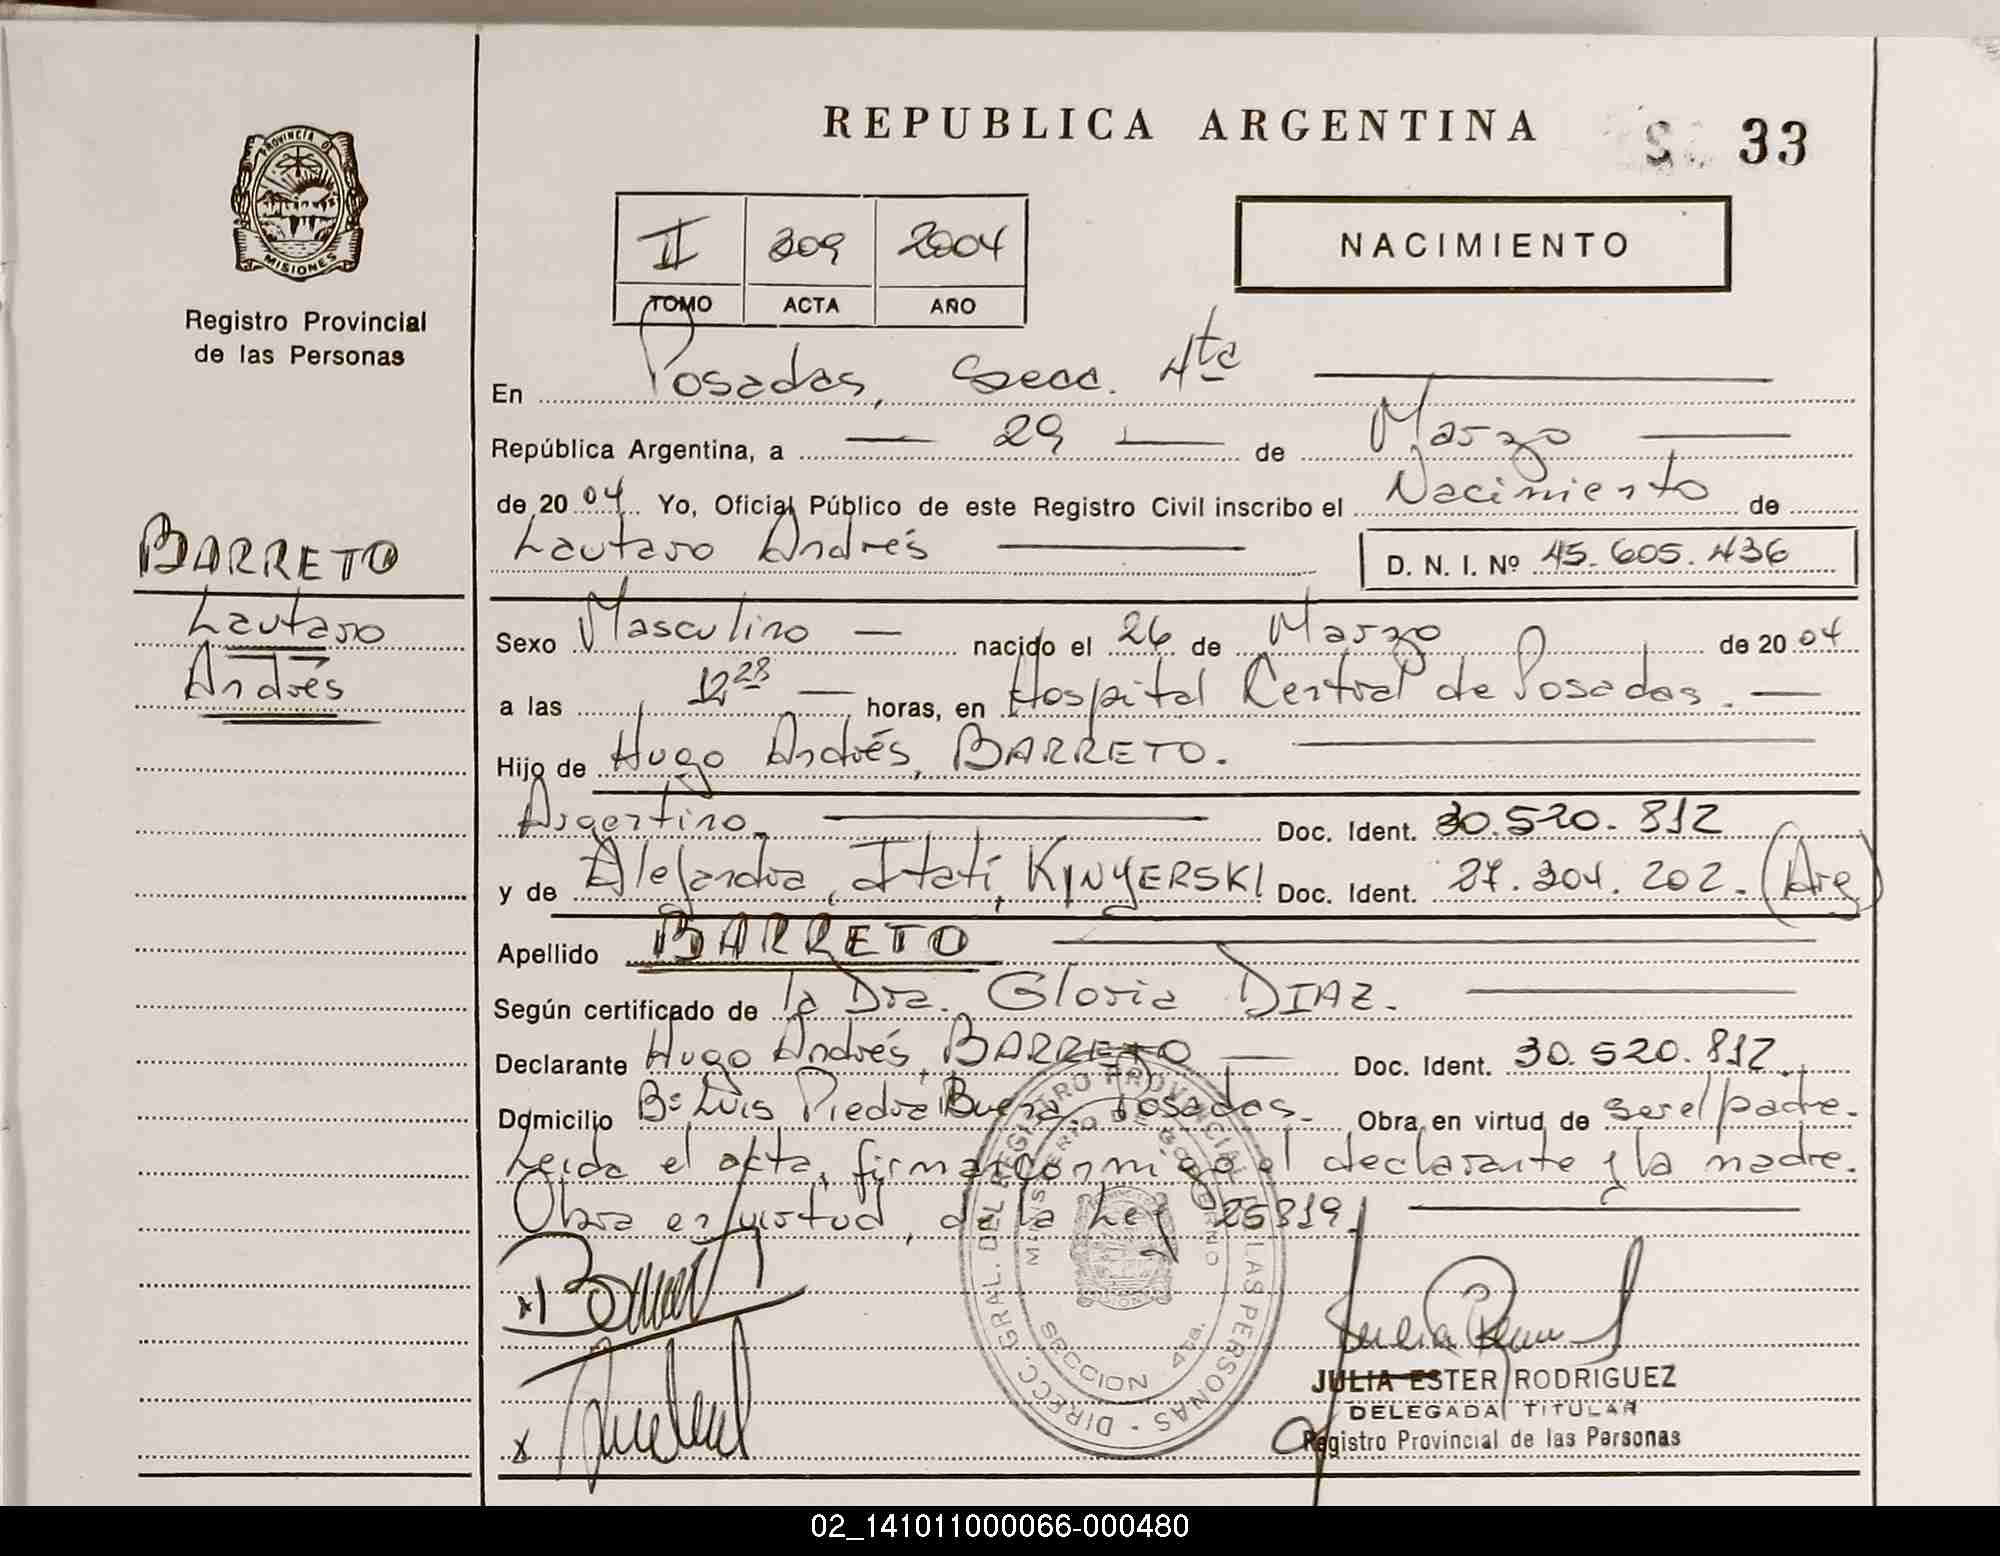 REPUBLICA ARGENTINA
33
PROVINCIA DE
MISIONES
Registro Provincial
de las Personas
II 209 2004
TOMO ACTA AÑO
NACIMIENTO
En Posadas, Secc. 4ta
República Argentina, a 29 de Marzo
de 2004 Yo, Oficial Público de este Registro Civil inscribo el Nacimiento de
Lautaro Andrés D. N. I. Nº 45.605.436
BARRETO
Lautaro
Andrés
Sexo Masculino nacido el 26 de Marzo de 2004
a las 12 28 horas, en Hospital Central de Posadas.
Hijo de Hugo Andrés, BARRETO.
Argentino. Doc. Ident. 30.520.812
y de Alejandra, Itatí, KINYERSKI Doc. Ident. 27.304.202. (Arg)
Apellido BARRETO
Según certificado de la Dra. Gloria DIAZ.
Declarante Hugo Andrés, BARRETO Doc. Ident. 30.520.812.
Domicilio Bº Luis Piedra Buena, Posadas. Obra en virtud de ser el padre.
Leida el acta, firmar conmigo el declarante y la madre.
Obra en virtud, de la Ley 25819.
DIRECC. GRAL. DEL REGISTRO PROVINCIAL DE LAS PERSONAS
MINISTERIO DE GOBIERNO
SECCION 4ta.
JULIA ESTER RODRIGUEZ
DELEGADA TITULAR
Registro Provincial de las Personas
02_141011000066-000480